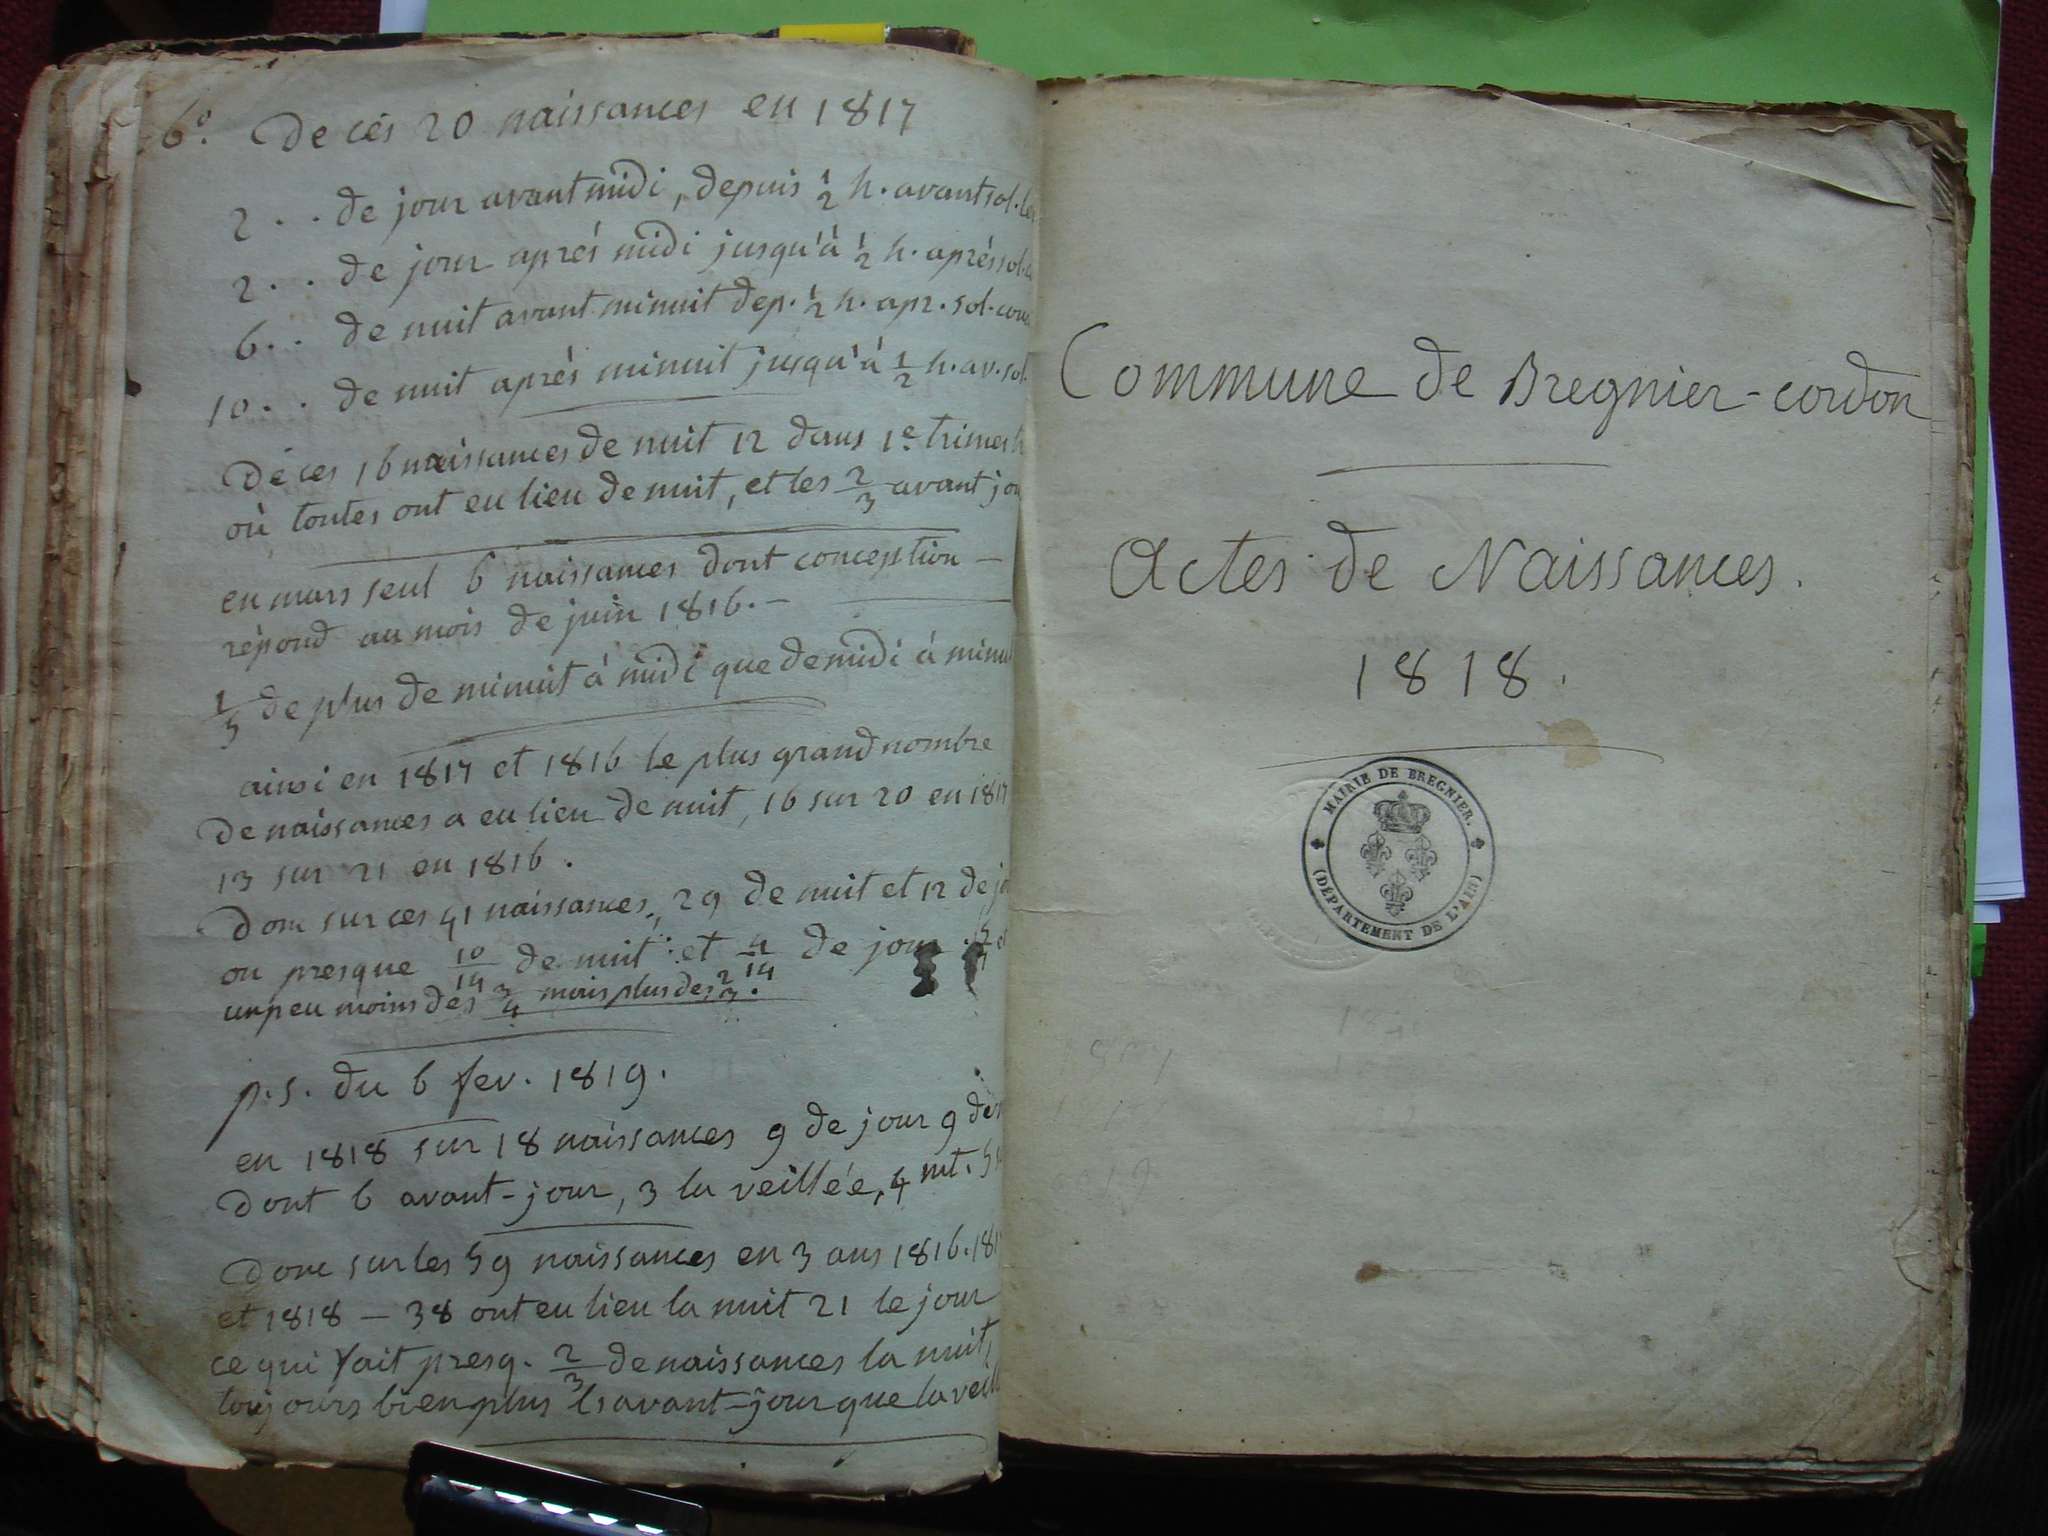 6º. De ces 20 naissances en 1817
2 . . de jour avant midi, depuis 1/2 h. avant sol.
2 . . de jour après midi jusqu'à 1/2 h. après sol.
6 . . de nuit avant minuit dep. 1/2 h. apr. sol. cou
10 . . de nuit après minuit jusqu'à 1/2 h. av. sol.
De ces 16 naissances de nuit 12 dans 1e. trimest
où toutes ont eu lieu de nuit, et les 2/3 avant jou
en mars seul 6 naissances dont conception —
répond au mois de juin 1816. —
de plus de minuit à midi que de midi à minu
ainsi en 1817 et 1816 le plus grand nombre
de naissances a eu lieu de nuit, 16 sur 20 en 1817
13 sur 21 en 1816.
Donc sur ces 41 naissances, 29 de nuit et 12 de jo
ou presque 10/14 de nuit et 4/14 de jour
un peu moins des 3/4 mais plus des 2/3.
p.s. du 6 fev. 1819.
en 1818 sur 18 naissances 9 de jour 9 de
dont 6 avant-jour, 3 la veillée, 4 mt. 5
Donc sur les 59 naissances en 3 ans 1816. 181
et 1818 — 38 ont eu lieu la nuit 21 le jour
ce qui fait presq. 2/3 de naissances la nuit,
toujours bien plus l'avant-jour que la veill
Commune de Bregnier-cordon
Actes de Naissances.
1818.
MAIRIE DE BREGNIER.
(DÉPARTEMENT DE L'AIN)